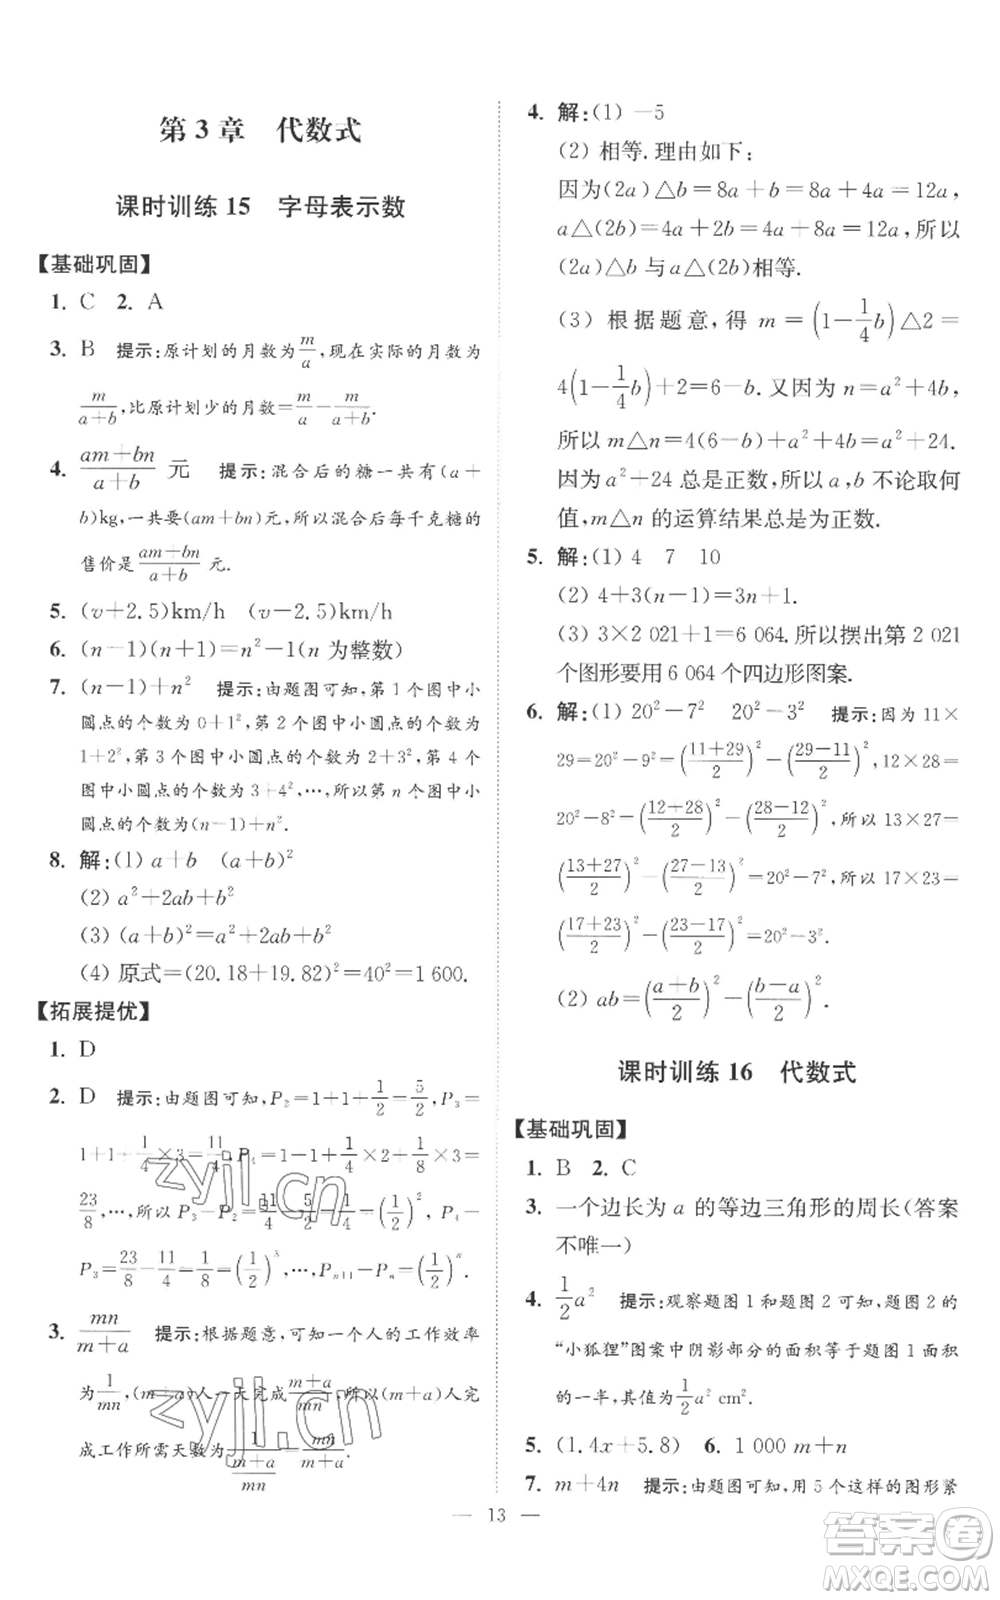 第 3 章　代数式
课时训练 15　字母表示数
【基础巩固】
1. C　2. A
3. B　提示:原计划的月数为 m/a,现在实际的月数为
m/(a+b),比原计划少的月数=m/a－m/(a+b).
4. (am+bn)/(a+b) 元　提示:混合后的糖一共有(a+
b)kg,一共要(am+bn)元,所以混合后每千克糖的
售价是 (am+bn)/(a+b) 元.
5. (v+2.5)km/h　(v－2.5)km/h
6. (n－1)(n+1)=n²－1(n 为整数)
7. (n－1)+n²　提示:由题图可知,第 1 个图中小
圆点的个数为 0+1²,第 2 个图中小圆点的个数为
1+2²,第 3 个图中小圆点的个数为 2+3²,第 4 个
图中小圆点的个数为 3+4²,…,所以第 n 个图中小
圆点的个数为(n－1)+n².
8. 解:(1) a+b　(a+b)²
(2) a²+2ab+b²
(3) (a+b)²=a²+2ab+b²
(4) 原式=(20.18+19.82)²=40²=1 600.
【拓展提优】
1. D
2. D　提示:由题图可知,P₂=1+1+1/2=5/2,P₃=
1+1+1/4×3=11/4,P₄=1+1+1/4×2+1/8×3=
23/8,…,所以 P₃－P₂=11/4－5/2=1/4=(1/2)²,P₄－
P₃=23/8－11/4=1/8=(1/2)³,…,Pₙ₊₁－Pₙ=(1/2)ⁿ.
3. mn/(m+a)　提示:根据题意,可知一个人的工作效率
为 1/mn,(m+a)人一天完成 (m+a)/mn,所以(m+a)人完
成工作所需天数为 1/((m+a)/mn)=mn/(m+a).
4. 解:(1) －5
(2) 相等.理由如下:
因为(2a)△b=8a+b=8a+4a=12a,
a△(2b)=4a+2b=4a+8a=12a,所以
(2a)△b 与 a△(2b)相等.
(3) 根据题意,得 m=(1－1/4b)△2=
4(1－1/4b)+2=6－b.又因为 n=a²+4b,
所以 m△n=4(6－b)+a²+4b=a²+24.
因为 a²+24 总是正数,所以 a,b 不论取何
值,m△n 的运算结果总是为正数.
5. 解:(1) 4　7　10
(2) 4+3(n－1)=3n+1.
(3) 3×2 021+1=6 064.所以摆出第 2 021
个图形要用 6 064 个四边形图案.
6. 解:(1) 20²－7²　20²－3²　提示:因为 11×
29=20²－9²=((11+29)/2)²－((29－11)/2)²,12×28=
20²－8²=((12+28)/2)²－((28－12)/2)²,所以 13×27=
((13+27)/2)²－((27－13)/2)²=20²－7²,所以 17×23=
((17+23)/2)²－((23－17)/2)²=20²－3².
(2) ab=((a+b)/2)²－((b－a)/2)².
课时训练 16　代数式
【基础巩固】
1. B　2. C
3. 一个边长为 a 的等边三角形的周长(答案
不唯一)
4. 1/2a²　提示:观察题图 1 和题图 2 可知,题图 2 的
“小狐狸”图案中阴影部分的面积等于题图 1 面积
的一半,其值为 1/2a² cm².
5. (1.4x+5.8)　6. 1 000 m+n
7. m+4n　提示:由题图可知,用 5 个这样的图形紧
— 13 —
zyjl.cn
zyjl.cn
答案圈
MXQE.COM